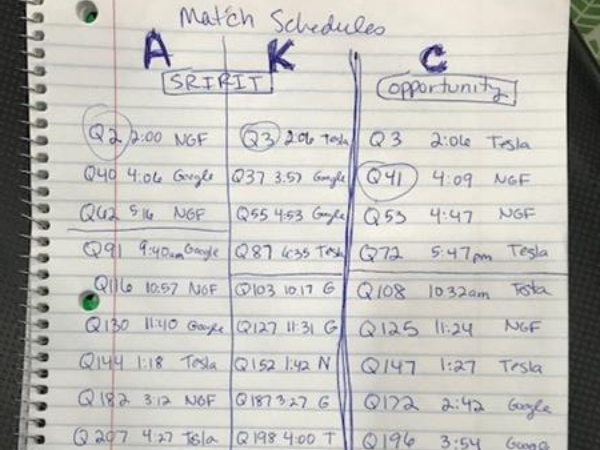 Match Schedules
A K C
SRIRIT opportunity
Q2 2:00 NGF Q3 2:06 Tesla Q3 2:06 Tesla
Q40 4:06 Google Q37 3:57 Google Q41 4:09 NGF
Q62 5:16 NGF Q55 4:53 Google Q53 4:47 NGF
Q91 9:40am Google Q87 6:35 Tesla Q72 5:47pm Tesla
Q116 10:57 NGF Q103 10:17 G Q108 10:32am Tesla
Q130 11:40 Google Q127 11:31 G Q125 11:24 NGF
Q144 1:18 Tesla Q152 1:42 N Q147 1:27 Tesla
Q182 3:12 NGF Q187 3:27 G Q172 2:42 Google
Q207 4:27 Tesla Q198 4:00 T Q196 3:54 Google